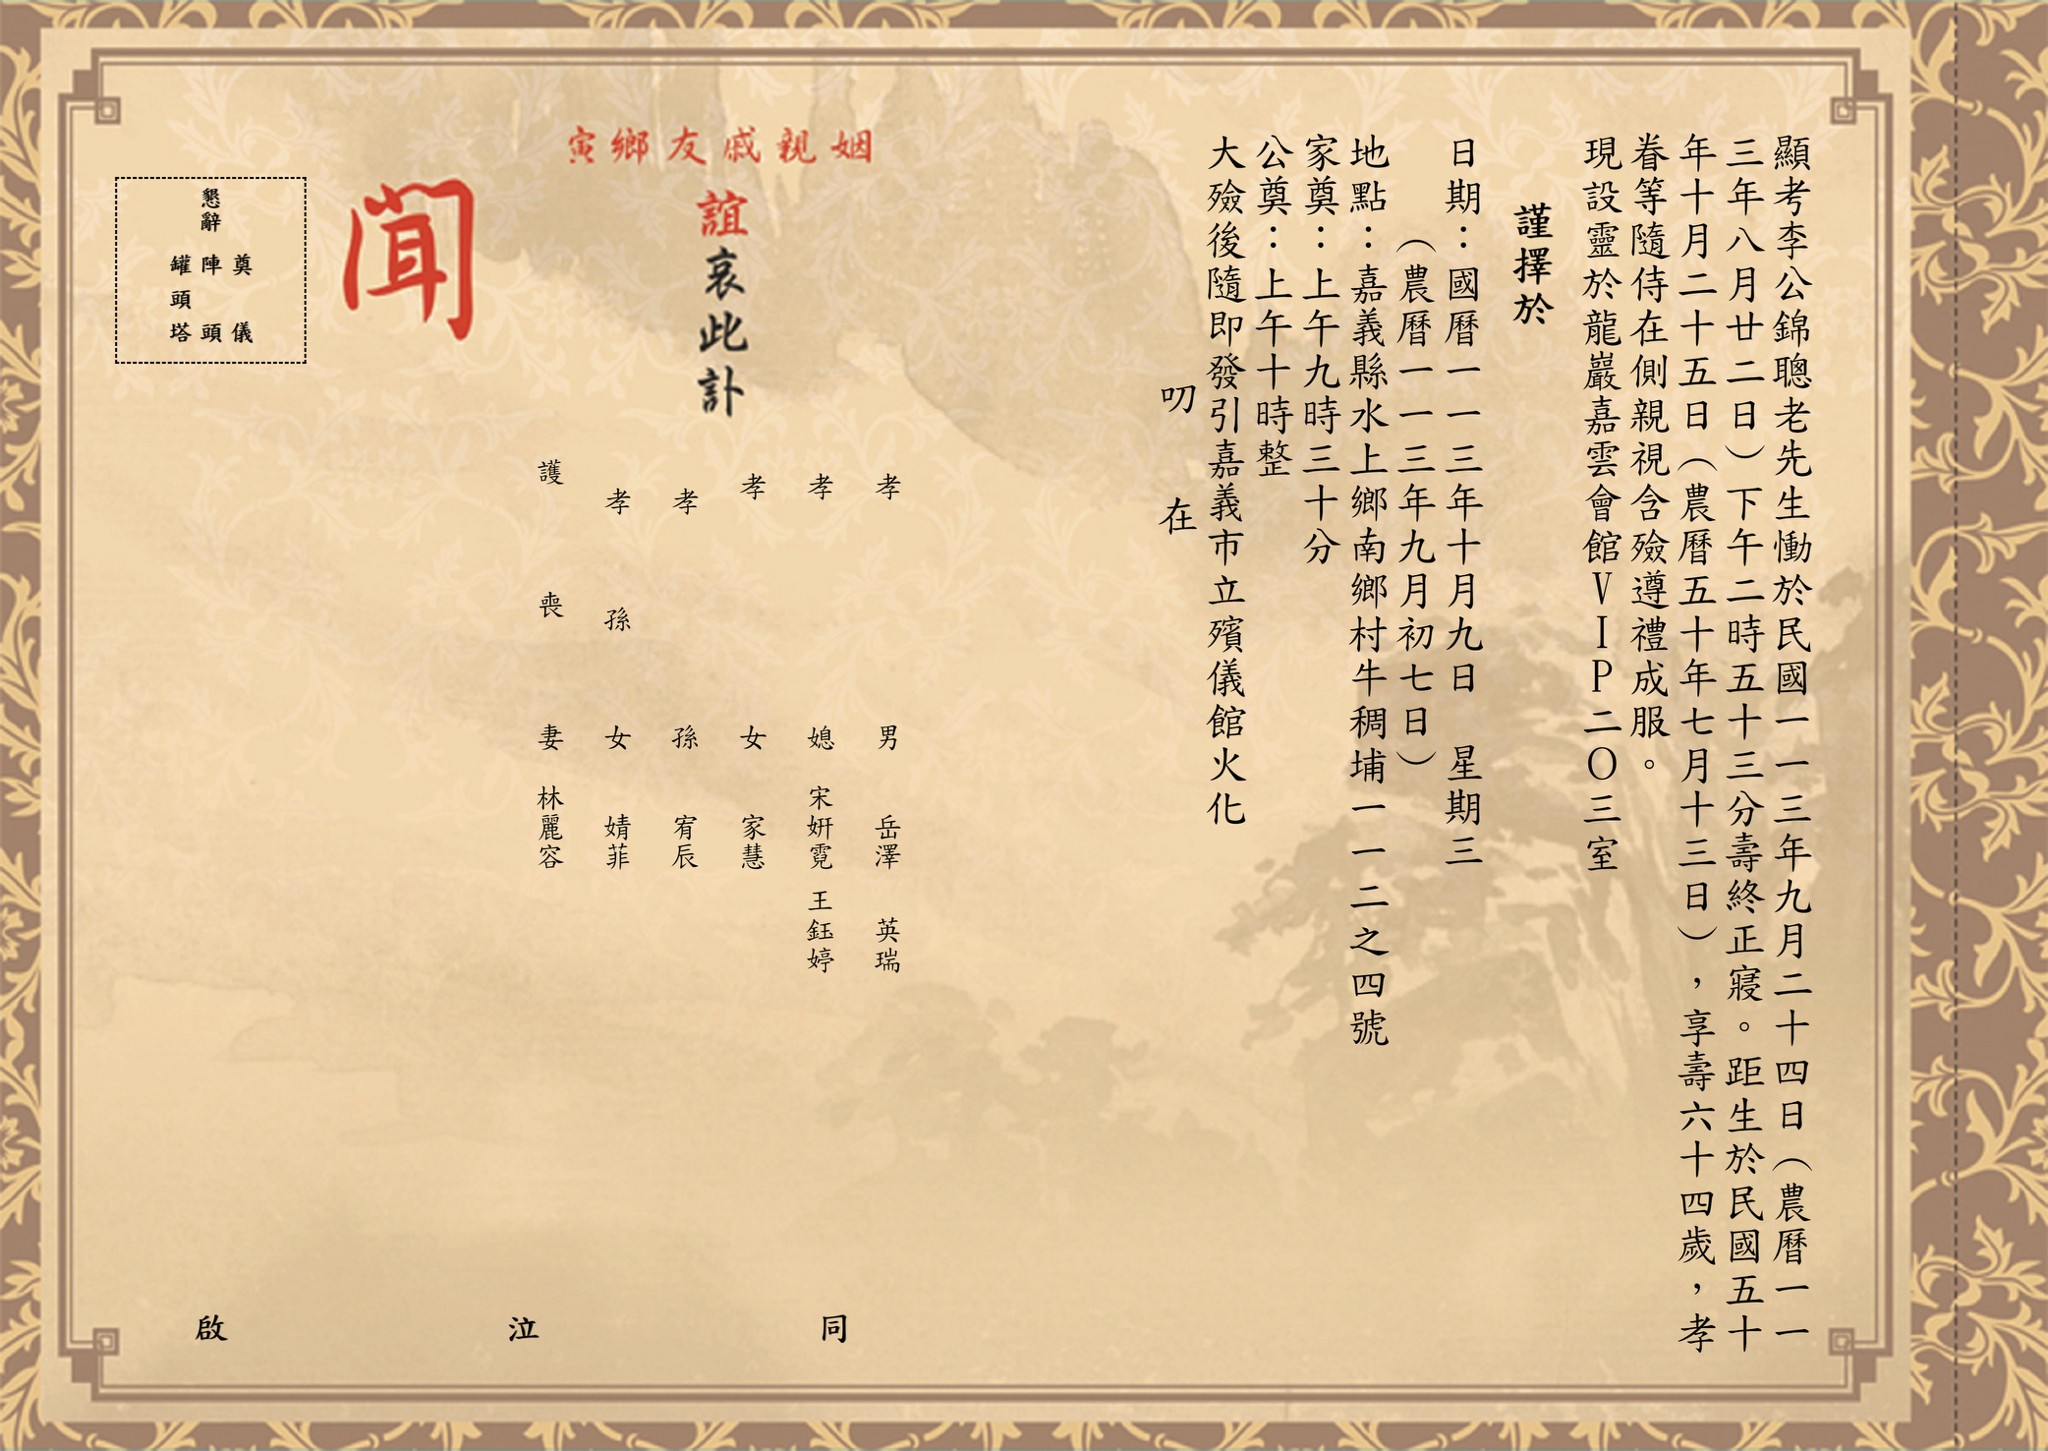 顯考李公錦聰老先生慟於民國一一三年九月二十四日（農曆一一
三年八月廿二日）下午二時五十三分壽終正寢。距生於民國五十
年十月二十五日（農曆五十年七月十三日），享壽六十四歲，孝
眷等隨侍在側親視含殮遵禮成服。
現設靈於龍巖嘉雲會館ＶＩＰ二〇三室
謹擇於
日期：國曆一一三年十月九日　星期三
（農曆一一三年九月初七日）
地點：嘉義縣水上鄉南鄉村牛稠埔一一二之四號
家奠：上午九時三十分
公奠：上午十時整
大殮後隨即發引嘉義市立殯儀館火化
叨　在
姻親戚友鄉寅
誼哀此訃
聞
孝　男　岳澤　英瑞
孝　媳　宋姸霓　王鈺婷
孝　女　家慧
孝　孫　宥辰
孝　孫　女　婧菲
護　喪　妻　林麗容
同　泣　啟
懇辭
奠儀
陣頭
罐頭塔